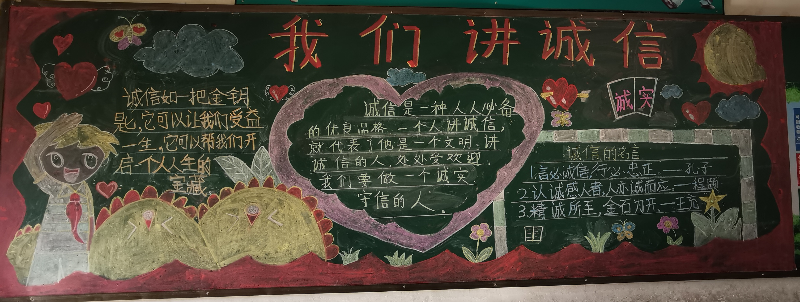 我们讲诚信
诚信如一把金钥
匙，它可以让我们受益
一生，它可以帮我们开
启一个人人生的
宝藏
诚信是一种人人必备
的优良品格，一个人讲诚信，
就代表了他是一个文明．讲
诚信的人，处处受欢迎
我们要做一个诚实．
守信的人．
诚实
诚信的名言
1.言必诚信，行必忠正．——孔子
2.以诚感人者，人亦诚而应．—程颐
3.精诚所至，金石为开．—王充